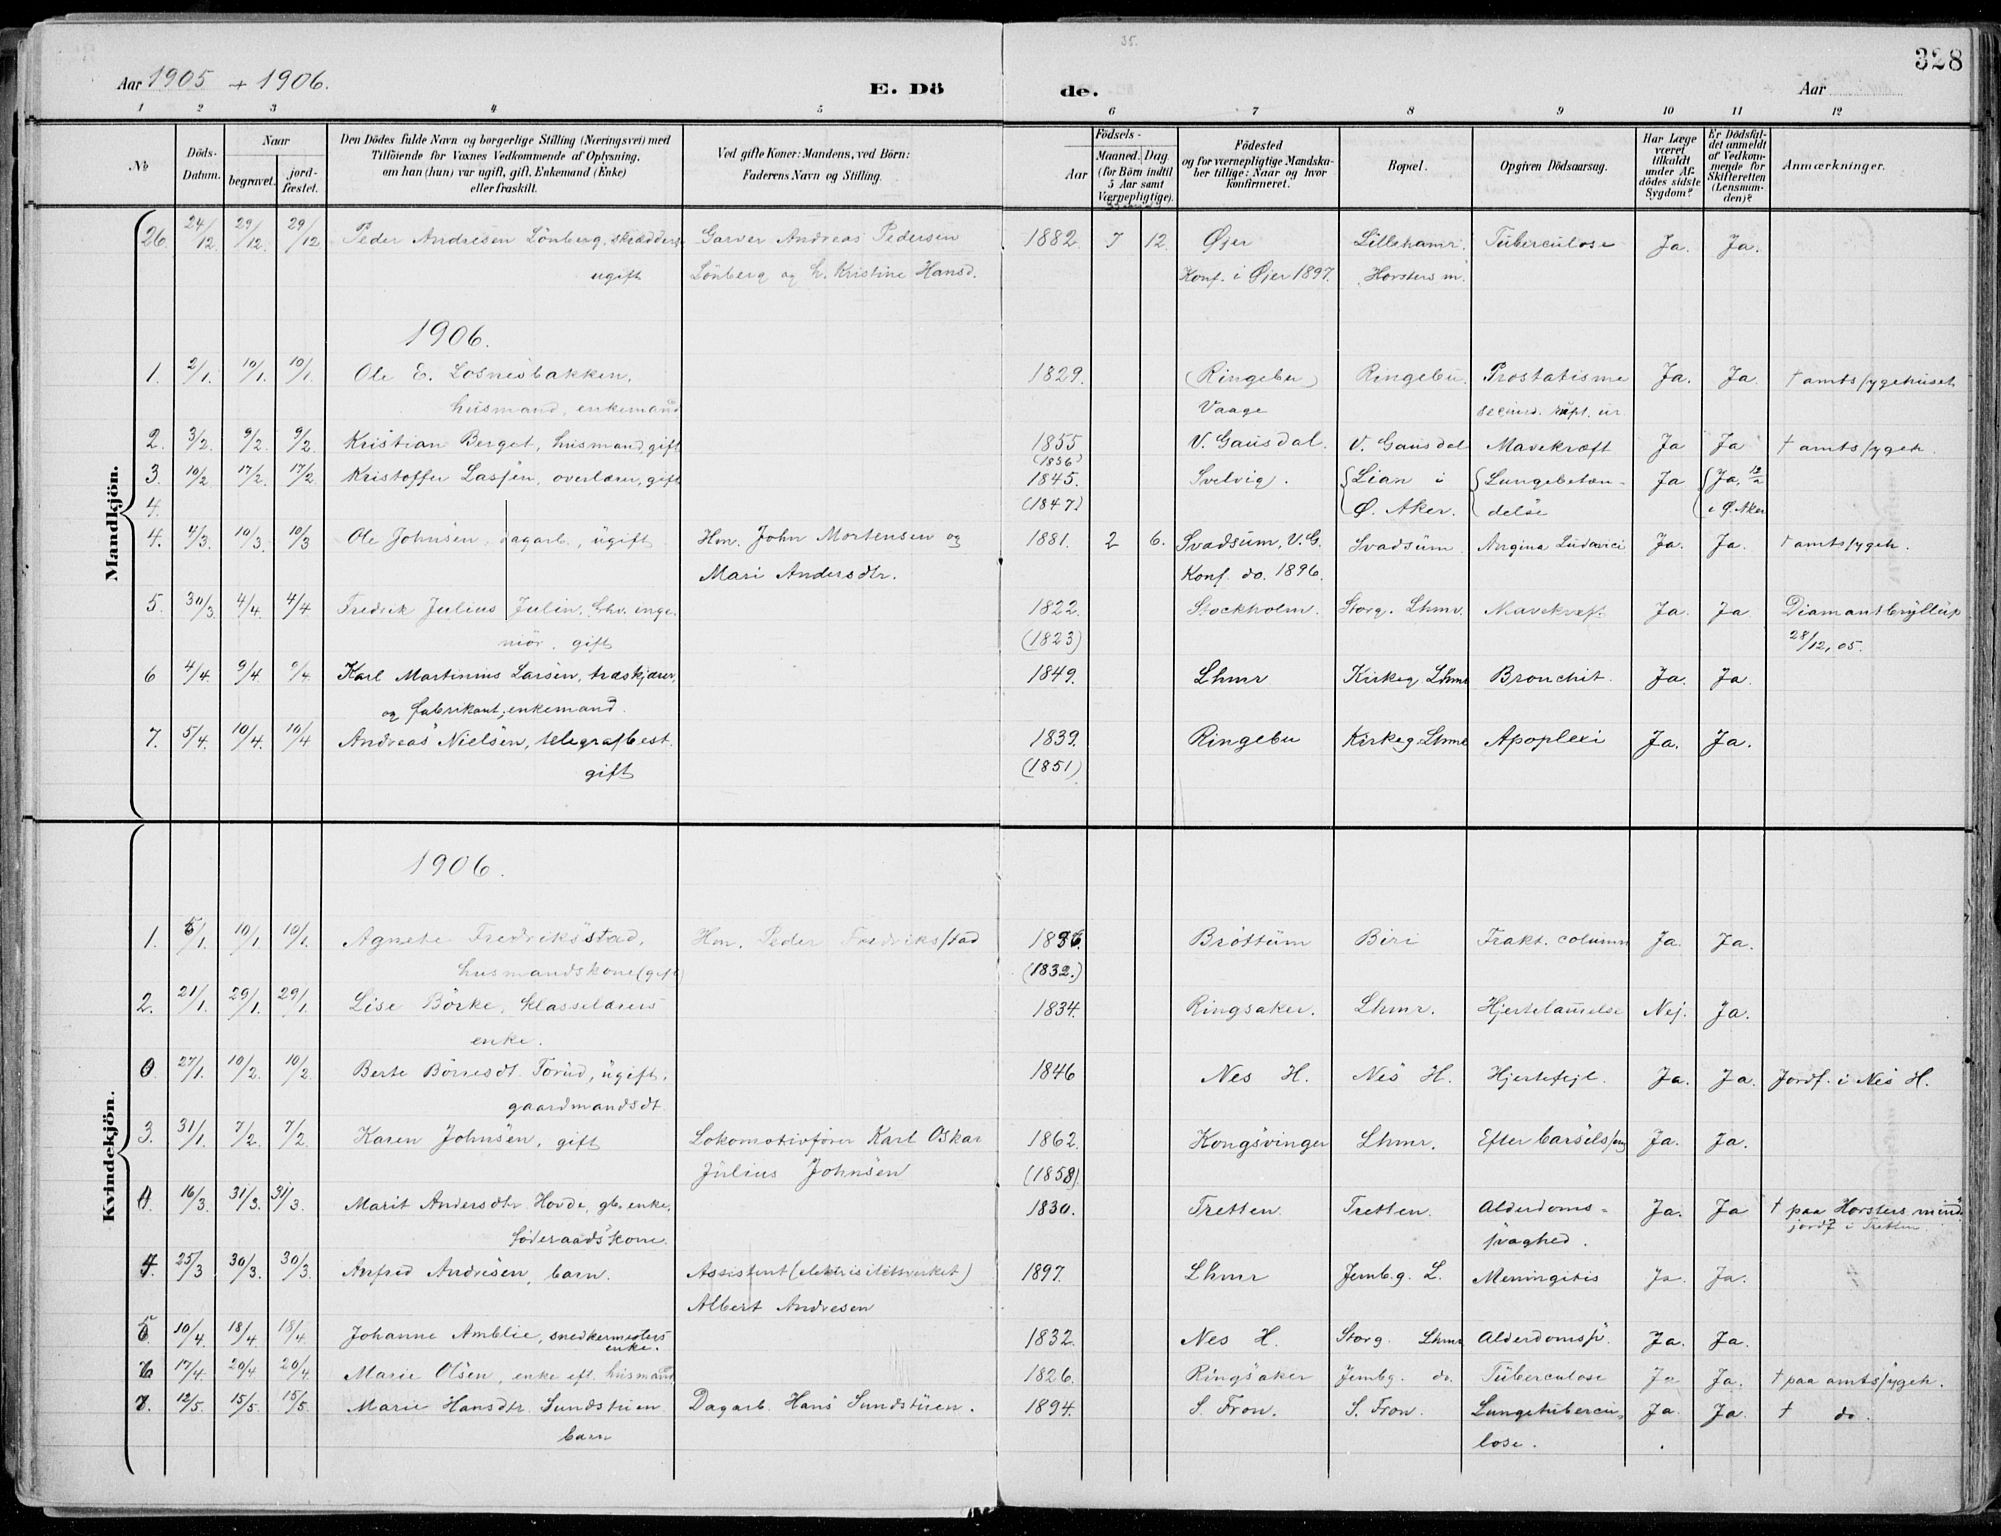 35.
328
Aar 1905 + 1906.
E. Dö
de.
Aar
1 2 3 4 5 6 7 8 9 10 11 12
No
Döds-
Datum.
Naar
begravet.
jord-
fæstet.
Den Dödes fulde Navn og borgerlige Stilling (Næringsvei) med
Tilföiende for Voxnes Vedkommende af Oplysning,
om han (hun) var ugift, gift, Enkemand (Enke)
eller fraskilt.
Ved gifte Koner: Mandens, ved Börn:
Faderens Navn og Stilling.
Födsels-
Aar
Maaned. Dag
(for Börn indtil
5 Aar samt
Værnepligtige).
Födested
og for værnepligtige Mandska-
ber tillige: Naar og hvor
konfirmeret.
Bopæl.
Opgiven Dödsaarsag.
Har Læge
været
tilkaldt
under Af-
dödes sidste
Sygdom?
Er Dödsfal-
det anmeldt
af Vedkom-
mende for
Skifteretten
(Lensman-
den)?
Anmærkninger.
Mandkjön.
26. 24/12 29/12 29/12 Peder Andresen Lönberg, skrædders. Garver Andreas Pedersen 1882. 7 12. Øjer Lillehamr. Tuberculose Ja. Ja.
ugift Lönberg og h. Kristine Hansd. Konf. i Øjer 1897. Horsters m.
1906.
1. 2/1. 10/1. 10/1. Ole E. Losnesbakken, 1829. (Ringebu) Ringebu. Prostatisme Ja. Ja. † amtssygehuset
husmand, enkemand Vaage secund. rupt. ur.
2. 3/2. 9/2. 9/2. Kristian Berget, husmand, gift 1855 V. Gausdal. V. Gausdal Mavekræft Ja Ja † amtssygeh.
(1856)
3. 10/2. 17/2. 17/2 Kristoffer Lassen, overlærer, gift 1845. Svelvig. Lian i Lungebetæn- Ja Ja, 12/2
4. (1847) Ø. Aker. delse i Ø. Aker
4. 4/3. 10/3. 10/3 Ole Johnsen, dagarb., ugift Hm. John Mortensen og 1881. 2 6. Svadsum, V. G. Svadsum. Angina Ludovici Ja. Ja. † amtssygeh.
Mari Andersdtr. Konf. do. 1896.
5. 30/3. 4/4. 4/4 Fredrik Julius Julin, fhv. inge- 1822. Stockholm. Storg. Lhmr. Mavekræft. Ja. Ja Diamantbryllup
niör, gift (1823) 28/12, 05.
6 4/4. 9/4 9/4. Karl Martinius Larsen, træskjærer, 1849. Lhmr Kirkeg. Lhmr Bronchit. Ja. Ja.
og fabrikant, enkemand.
7. 5/4. 10/4. 10/4 Andreas Nielsen, telegrafbest. 1839. Ringebu Kirkeg. Lhmr Apoplexi Ja. Ja.
gift (1851)
Kvindekjön.
1906.
1. 5/1. 10/1 10/1. Agnete Fredriksstad, Hm. Peder Fredriksstad 1836. Bröttum Biri Frakt. column Ja. Ja.
husmandskone (gift) (1832.)
2. 21/1. 29/1. 29/1. Lise Börke, klasselærers 1834. Ringsaker. Lhmr. Hjertelammelse Nej. Ja.
enke.
0. 27/1. 10/2. 10/2. Berte Börresdt. Torud, ugift, 1846 Nes H. Nes H. Hjertefejl. Ja. Ja. Jordf. i Nes H.
gaardmandsdt.
3. 31/1. 7/2. 7/2. Karen Johnsen, gift Lokomotivförer Karl Oskar 1862. Kongsvinger Lhmr. Efter barselsseng Ja. Ja.
Julius Johnsen (1858)
0. 16/3. 31/3. 31/3. Marit Andersdtr. Hovde, gb. enke, 1830. Tretten. Tretten. Alderdoms- Ja. Ja † paa Horsters minde
föderaadskone. svaghed. jordf i Tretten
4. 25/3 30/3. 30/3. Anfred Andresen, barn. Assistent (elektrisitetsverket) 1897. Lhmr Jernb.g. L. Meningitis Ja Ja.
Albert Andresen
5. 10/4. 18/4 18/4 Johanne Amblie, snedkermesters 1832. Nes H. Storg. Lhmr Alderdomssv. Ja. Ja.
enke.
6 17/4. 20/4 20/4. Marie Olsen, enke eft. husmand 1826. Ringsaker Jernbg. do. Tuberculose Ja Ja. † paa amtssygeh.
7. 12/5. 15/5. 15/5. Marie Hansdtr. Sundstuen Dagarb. Hans Sundstuen. 1894. S. Fron. S. Fron. Lungetubercu- Ja. Ja. † do.
barn lose.